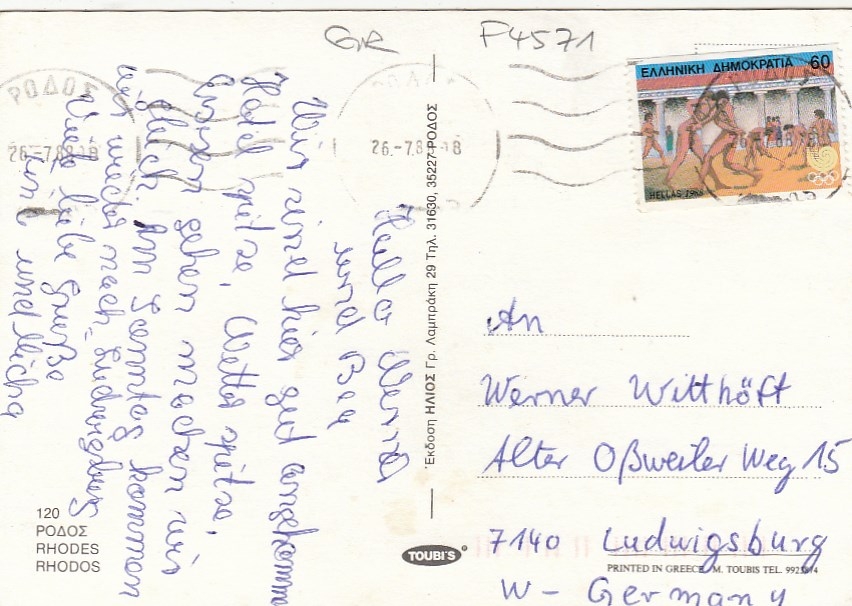 GR
F4571
ΕΛΛΗΝΙΚΗ ΔΗΜΟΚΡΑΤΙΑ 60
HELLAS 1988
ΡΟΔΟΣ
26.-7.88-18
26.-7.88-18
Hallo Werner
und Bea
Wir sind hier gut angekommen
Hotel spitze, Wetter spitze,
Essen gehen machen wir
gleich. Am Samstag kommen
wir wieder nach Ludwigsburg
Viele liebe Grüße
und Micha
Έκδοση ΗΛΙΟΣ Γρ. Λαμπράκη 29 Τηλ. 31630, 35227-ΡΟΔΟΣ
An
Werner Witthöft
Alter Oßweiler Weg 15
7140 Ludwigsburg
W- Germany
120
ΡΟΔΟΣ
RHODES
RHODOS
TOUBI'S
PRINTED IN GREECE M. TOUBIS TEL.